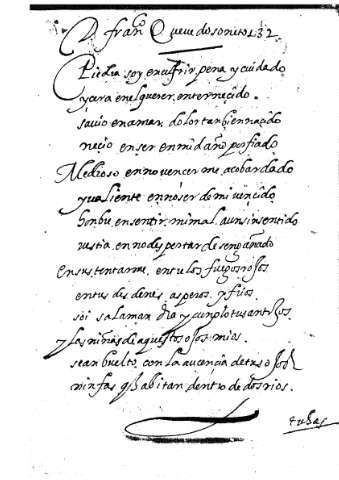 D franco Quevedo soneto 132
Piedra soy en sufrir pena y cuidado
y cera en el querer enternecido
sauio en amar dolor tan bien nacido
necio en ser en mi daño porfiado
Medroso en no vencerme acobardado
y valiente en no ser de mi vencido
honbre en sentir mi mal aun sin sentido
vestia en no despertar desengañado
en sustentarme en tus los fuegos rojos
en tus desdenes asperos y frios
soi salamandria y cunplo tus antojos
y las niñas de aquestos ojos mios
se an buelto con la aucencia de tus ojos
ninfas q habitan dentro de dos rios